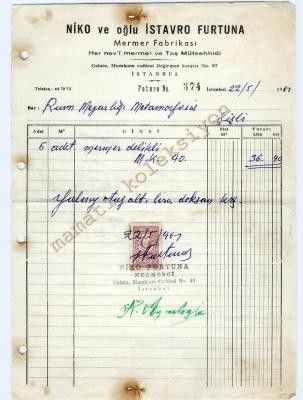 NİKO ve oğlu İSTAVRO FURTUNA
Mermer Fabrikası
Her nev'i mermer ve Taş Müteahhidi
Galata, Mumhane caddesi Değirmen karşısı No. 87
İSTANBUL
Telefon: 44 70 72
Fatura No. 374
İstanbul 22/5/1961
Bay: Rum Mezarlığı Metamofosis
Şişli
Adet M² CİNSİ Fiat Tutarı
M² Lira Krş. Lira Krş.
6 adet mermer delikli
40. 36. 90
Yalnız otuz altı lira doksan krş.
mamatis koleksiyon
22/5/961
NİKO FURTUNA
MERMERCİ
Galata, Mumhane Caddesi No.
İstanbul